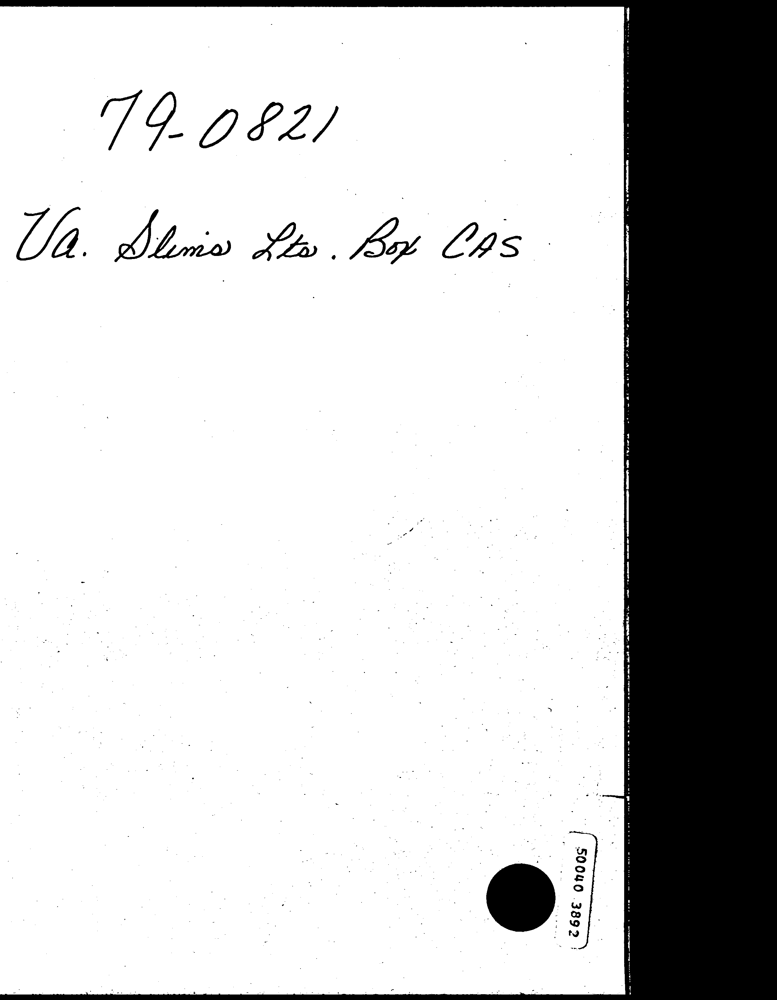 79-0821
Va. Slims Lts. Box CAS
50040 3892